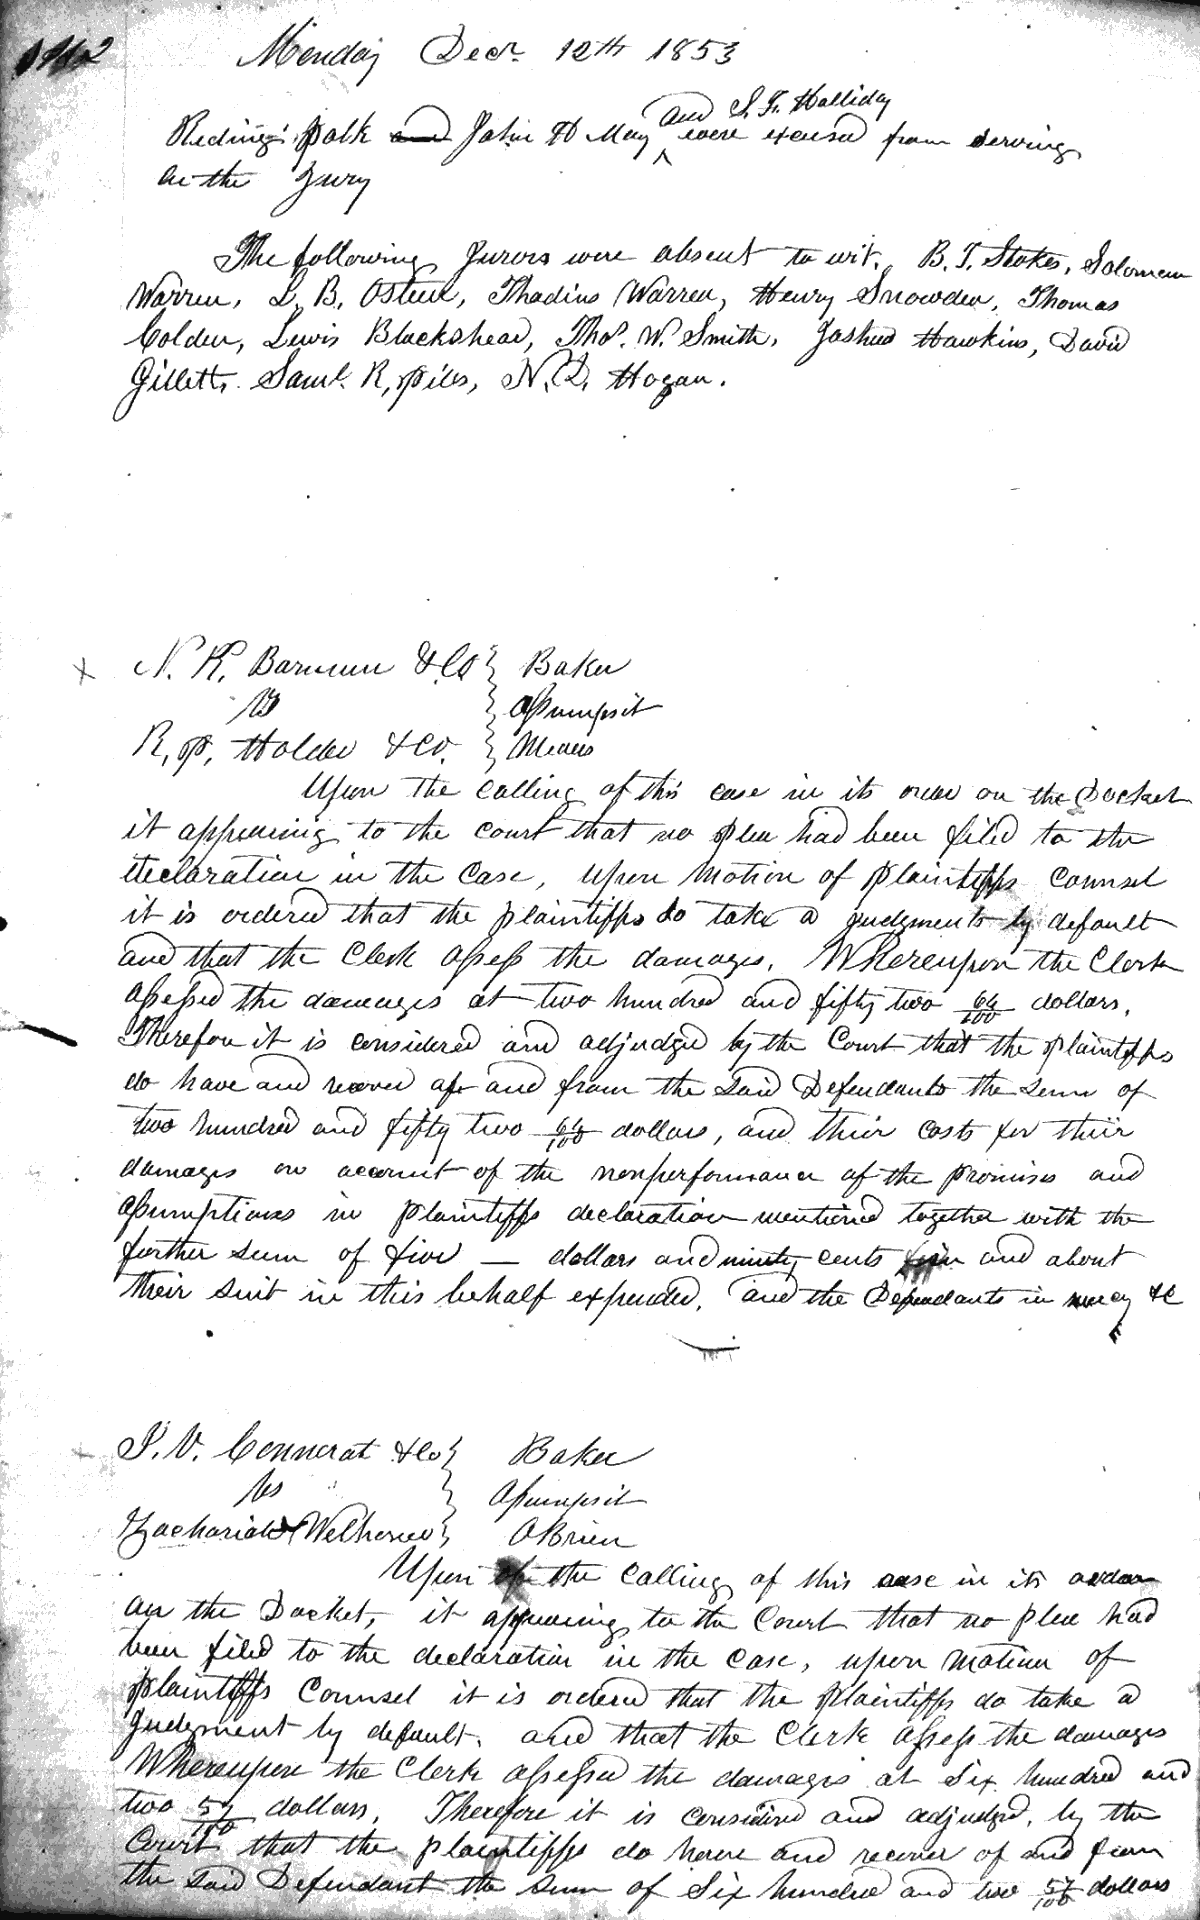 Monday Decr 12th 1853
Reding Polk and John H May and S. F. Halliday were excused from serving
on the Jury
The following Jurors were absent to wit. B. T. Stokes, Solomon
Warren, L. B. Osteen, Thadius Warren, Henry Snowden, Thomas
Colden, Lewis Blackshear, Thos. W. Smith, Joshua Hawkins, David
Gillett, Saml. R, Piles, N. D. Hogan.
N. K. Barnum & Co Baker
vs Assumpsit
R, P, Holder & Co. Means
Upon the calling of this case in its order on the Docket
it appearing to the court that no plea had been filed to the
declaration in the case, upon motion of plaintiffs counsel
it is ordered that the plaintiffs do take a judgments by default
and that the Clerk assess the damages. Whereupon the Clerk
assessed the damages at two hundred and fifty two 64/100 dollars.
Therefore it is considered and adjudged by the Court that the plaintiffs
do have and recover of and from the said Defendants the sum of
two hundred and fifty two 64/100 dollars, and their costs for their
damages on account of the nonperformance of the promises and
assumptions in plaintiffs declaration mentioned together with the
further sum of five — dollars and ninety cents and about
their suit in this behalf expended. and the Defendants in mercy &c
J. V. Connerat & Co Baker
vs Assumpsit
Zachariah OBrien
Upon the calling of this case in its order
on the Docket, it appearing to the Court that no plea had
been filed to the declaration in the case, upon motion of
plaintiffs Counsel it is ordered that the plaintiffs do take a
Judgment by default. and that the Clerk assess the damages
Whereupon the Clerk assessed the damages at Six hundred and
two 57/100 dollars, Therefore it is considered and adjudged, by the
Court that the plaintiffs do have and recover of and from
the said Defendant the sum of Six hundred and two 57/100 dollars